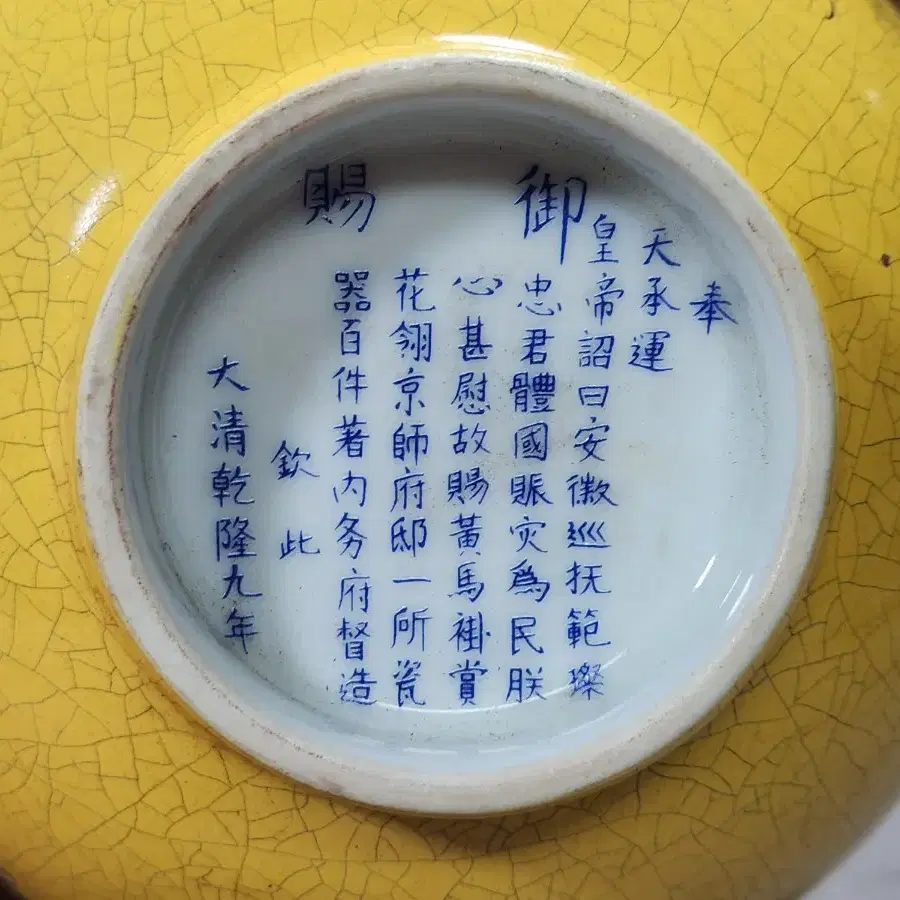 御賜
奉
天承運
皇帝詔曰安徽巡抚範璨
忠君體國賑灾為民朕
心甚慰故賜黃馬褂賞
花翎京師府邸一所瓷
器百件著内务府督造
欽此
大清乾隆九年